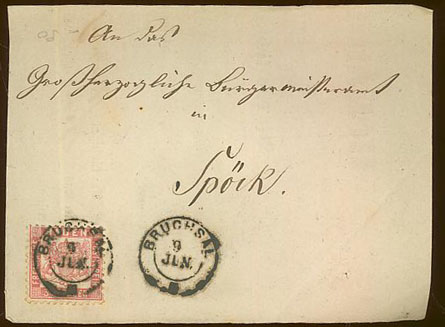 An das
Großherzogliche Bürgermeisteramt
in
Spöck.
BRUCHSAL
9
JUN.
BRUCHSAL
9
JUN.